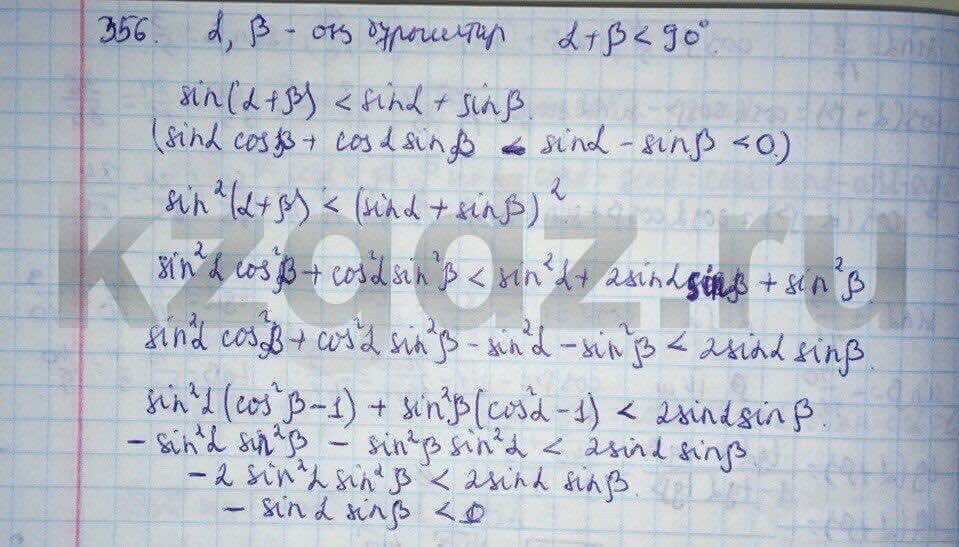 356. α, β - оң бұрыштар α+β < 90°.
sin(α+β) < sinα + sinβ.
(sinα cosβ + cosα sinβ < sinα - sinβ < 0.)
sin²(α+β) < (sinα + sinβ)²
sin²α cos²β + cos²α sin²β < sin²α + 2sinα sinβ + sin²β.
sin²α cos²β + cos²α sin²β - sin²α - sin²β < 2sinα sinβ.
sin²α(cos²β-1) + sin²β(cos²α-1) < 2sinα sinβ.
- sin²α sin²β - sin²β sin²α < 2sinα sinβ.
- 2 sin²α sin²β < 2sinα sinβ.
- sinα sinβ <
kzgdz.ru